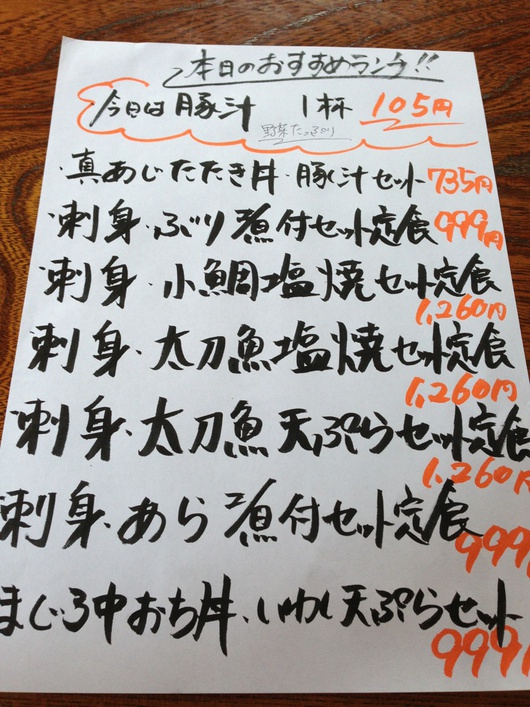 本日のおすすめランチ!!
今日は豚汁 1杯 105円
野菜たっぷり
真あじたたき丼・豚汁セット 735円
刺身・ぶり煮付セット定食 999円
刺身・小鯛塩焼セット定食
1,260円
刺身・太刀魚塩焼セット定食
1,260円
刺身・太刀魚天ぷらセット定食
1,260円
刺身・あら煮付セット定食
999
まぐろ中おち丼・いわし天ぷらセット
999